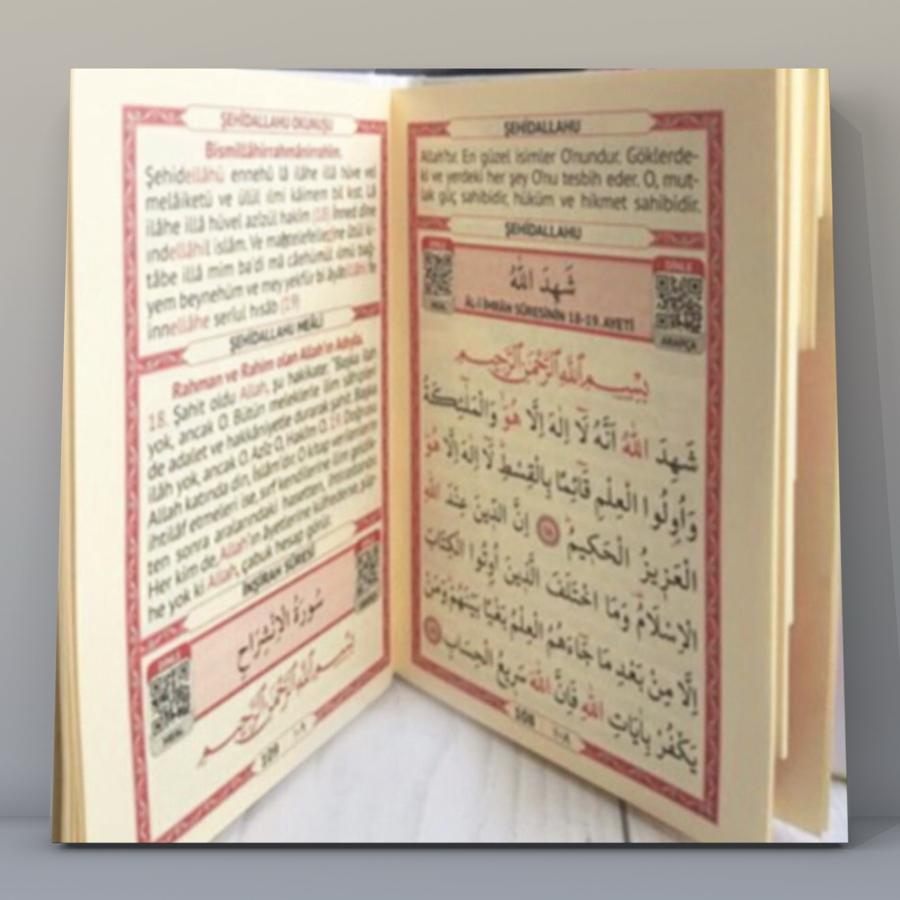 ŞEHİDALLAHU
Allah'tır. En güzel isimler O'nundur. Göklerde-
ki ve yerdeki her şey O'nu tesbih eder. O, mut-
lak güç sahibidir, hüküm ve hikmet sahibidir.
ŞEHİDALLAHU
DİNLE
MEAL
شَهِدَ اللّٰهُ
ÂL-İ İMRÂN SÛRESİNİN 18-19. AYETİ
DİNLE
ARAPÇA
بِسْمِ اللّٰهِ الرَّحْمٰنِ الرَّحِيمِ
شَهِدَ اللّٰهُ اَنَّهُ لَٓا اِلٰهَ اِلَّا هُوَ وَالْمَلٰٓئِكَةُ
وَاُولُوا الْعِلْمِ قَٓائِمًا بِالْقِسْطِ لَٓا اِلٰهَ اِلَّا هُوَ
الْعَزِيزُ الْحَكِيمُ ﴿١٨﴾ اِنَّ الدِّينَ عِنْدَ اللّٰهِ
الْاِسْلَامُ وَمَا اخْتَلَفَ الَّذِينَ اُوتُوا الْكِتَابَ
اِلَّا مِنْ بَعْدِ مَا جَٓاءَهُمُ الْعِلْمُ بَغْيًا بَيْنَهُمْ وَمَنْ
يَكْفُرْ بِاٰيَاتِ اللّٰهِ فَاِنَّ اللّٰهَ سَرِيعُ الْحِسَابِ ﴿١٩﴾
108 ١٠٨
ŞEHİDALLAHU OKUNUŞU
Bismillâhirrahmânirrahîm.
Şehidellâhü ennehû lâ ilâhe illâ hüve vel
melâiketü ve ülül ılmi kâimem bil kıst. Lâ
ilâhe illâ hüvel azîzül hakîm (18) İnned dîne
ındellâhil islâm. Ve mahtelefellezîne ûtül ki-
tâbe illâ mim ba'di mâ câehümül ılmü bağ-
yem beynehüm ve mey yekfür bi âyâtillâhi fe
innellâhe serîul hısâb (19)
ŞEHİDALLAHU MEÂLİ
Rahman ve Rahim olan Allah'ın Adıyla.
18. Şahit oldu Allah, şu hakikate: "Başka ilah
yok, ancak O. Bütün meleklerle ilim sahipleri
de adalet ve hakkâniyetle durarak şahit. Başka
ilâh yok, ancak O. Azîz O, Hakîm O. 19. Doğrusu
Allah katında din, İslâm'dır. O kitap verilenlerin
ihtilâf etmeleri ise, sırf kendilerine ilim geldik-
ten sonra aralarındaki hasetten, ihtirastandır.
Her kim de, Allah'ın âyetlerine küfrederse, şüp-
he yok ki Allah, çabuk hesap görür.
İNŞİRAH SÛRESİ
سُورَةُ الْاِنْشِرَاحِ
DİNLE
MEAL
بِسْمِ اللّٰهِ الرَّحْمٰنِ الرَّحِيمِ
109 ١٠٩